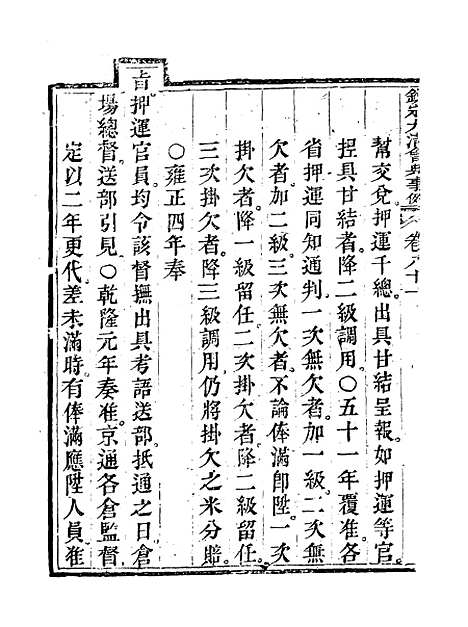 欽定大清會典事例 卷八十一
幫交兌押運千總出具甘結呈報如押運等官。
捏具甘結者降二級調用。○五十一年覆准各
省押運同知通判一次無欠者加一級二次無
欠者加二級三次無欠者不論俸滿卽陞一次
掛欠者降一級留任二次掛欠者降二級留任。
三次掛欠者降三級調用仍將掛欠之米分賠。
○雍正四年奉
旨押運官員均令該督撫出具考語送部抵通之日倉
場總督送部引見○乾隆元年奏准京通各倉監督
定以二年更代差未滿時有俸滿應陞人員准